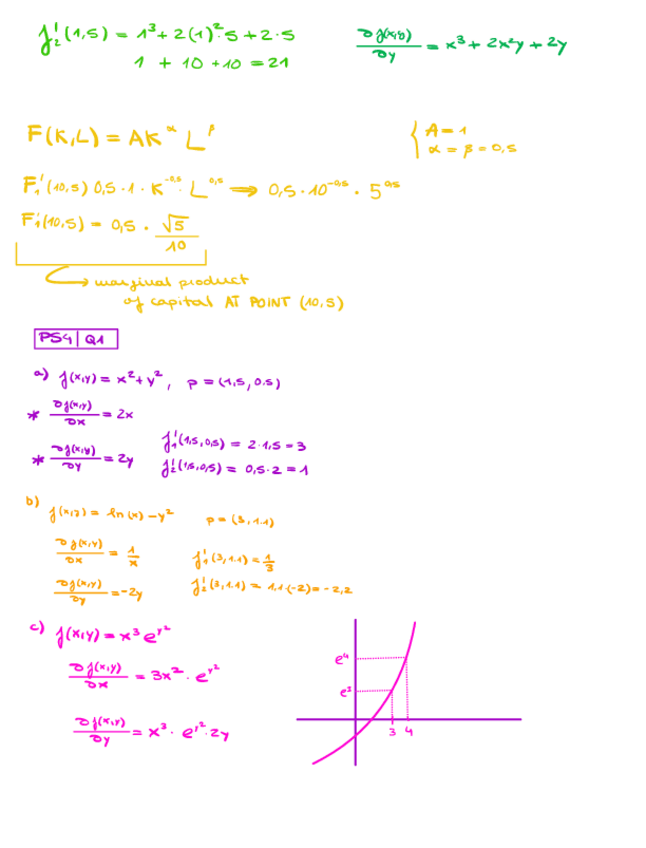 f₂'(1,5) = 1³ + 2(1)²·5 + 2·5
1 + 10 + 10 = 21
∂f(x,y)/∂y = x³ + 2x²y + 2y
F(K,L) = AK^α L^β
{ A = 1
α = β = 0,5
F₁'(10,5) 0,5·1·K^-0,5· L^0,5 ⟹ 0,5·10^-0,5 · 5^0,5
F₁'(10,5) = 0,5 · √5/10
→ marginal product
of capital AT POINT (10,5)
PS4 | Q1
a) f(x,y) = x² + y² , p = (1,5, 0.5)
* ∂f(x,y)/∂x = 2x
* ∂f(x,y)/∂y = 2y
f₁'(1,5, 0,5) = 2·1,5 = 3
f₂'(1,5, 0,5) = 0,5·2 = 1
b) f(x,y) = ln(x) - y² p = (3, 1.1)
∂f(x,y)/∂x = 1/x
f₁'(3, 1.1) = 1/3
∂f(x,y)/∂y = -2y
f₂'(3, 1.1) = 1.1·(-2) = -2,2
c) f(x,y) = x³ e^y²
∂f(x,y)/∂x = 3x² · e^y²
∂f(x,y)/∂y = x³ · e^y²·2y
e⁴
e³
3 4